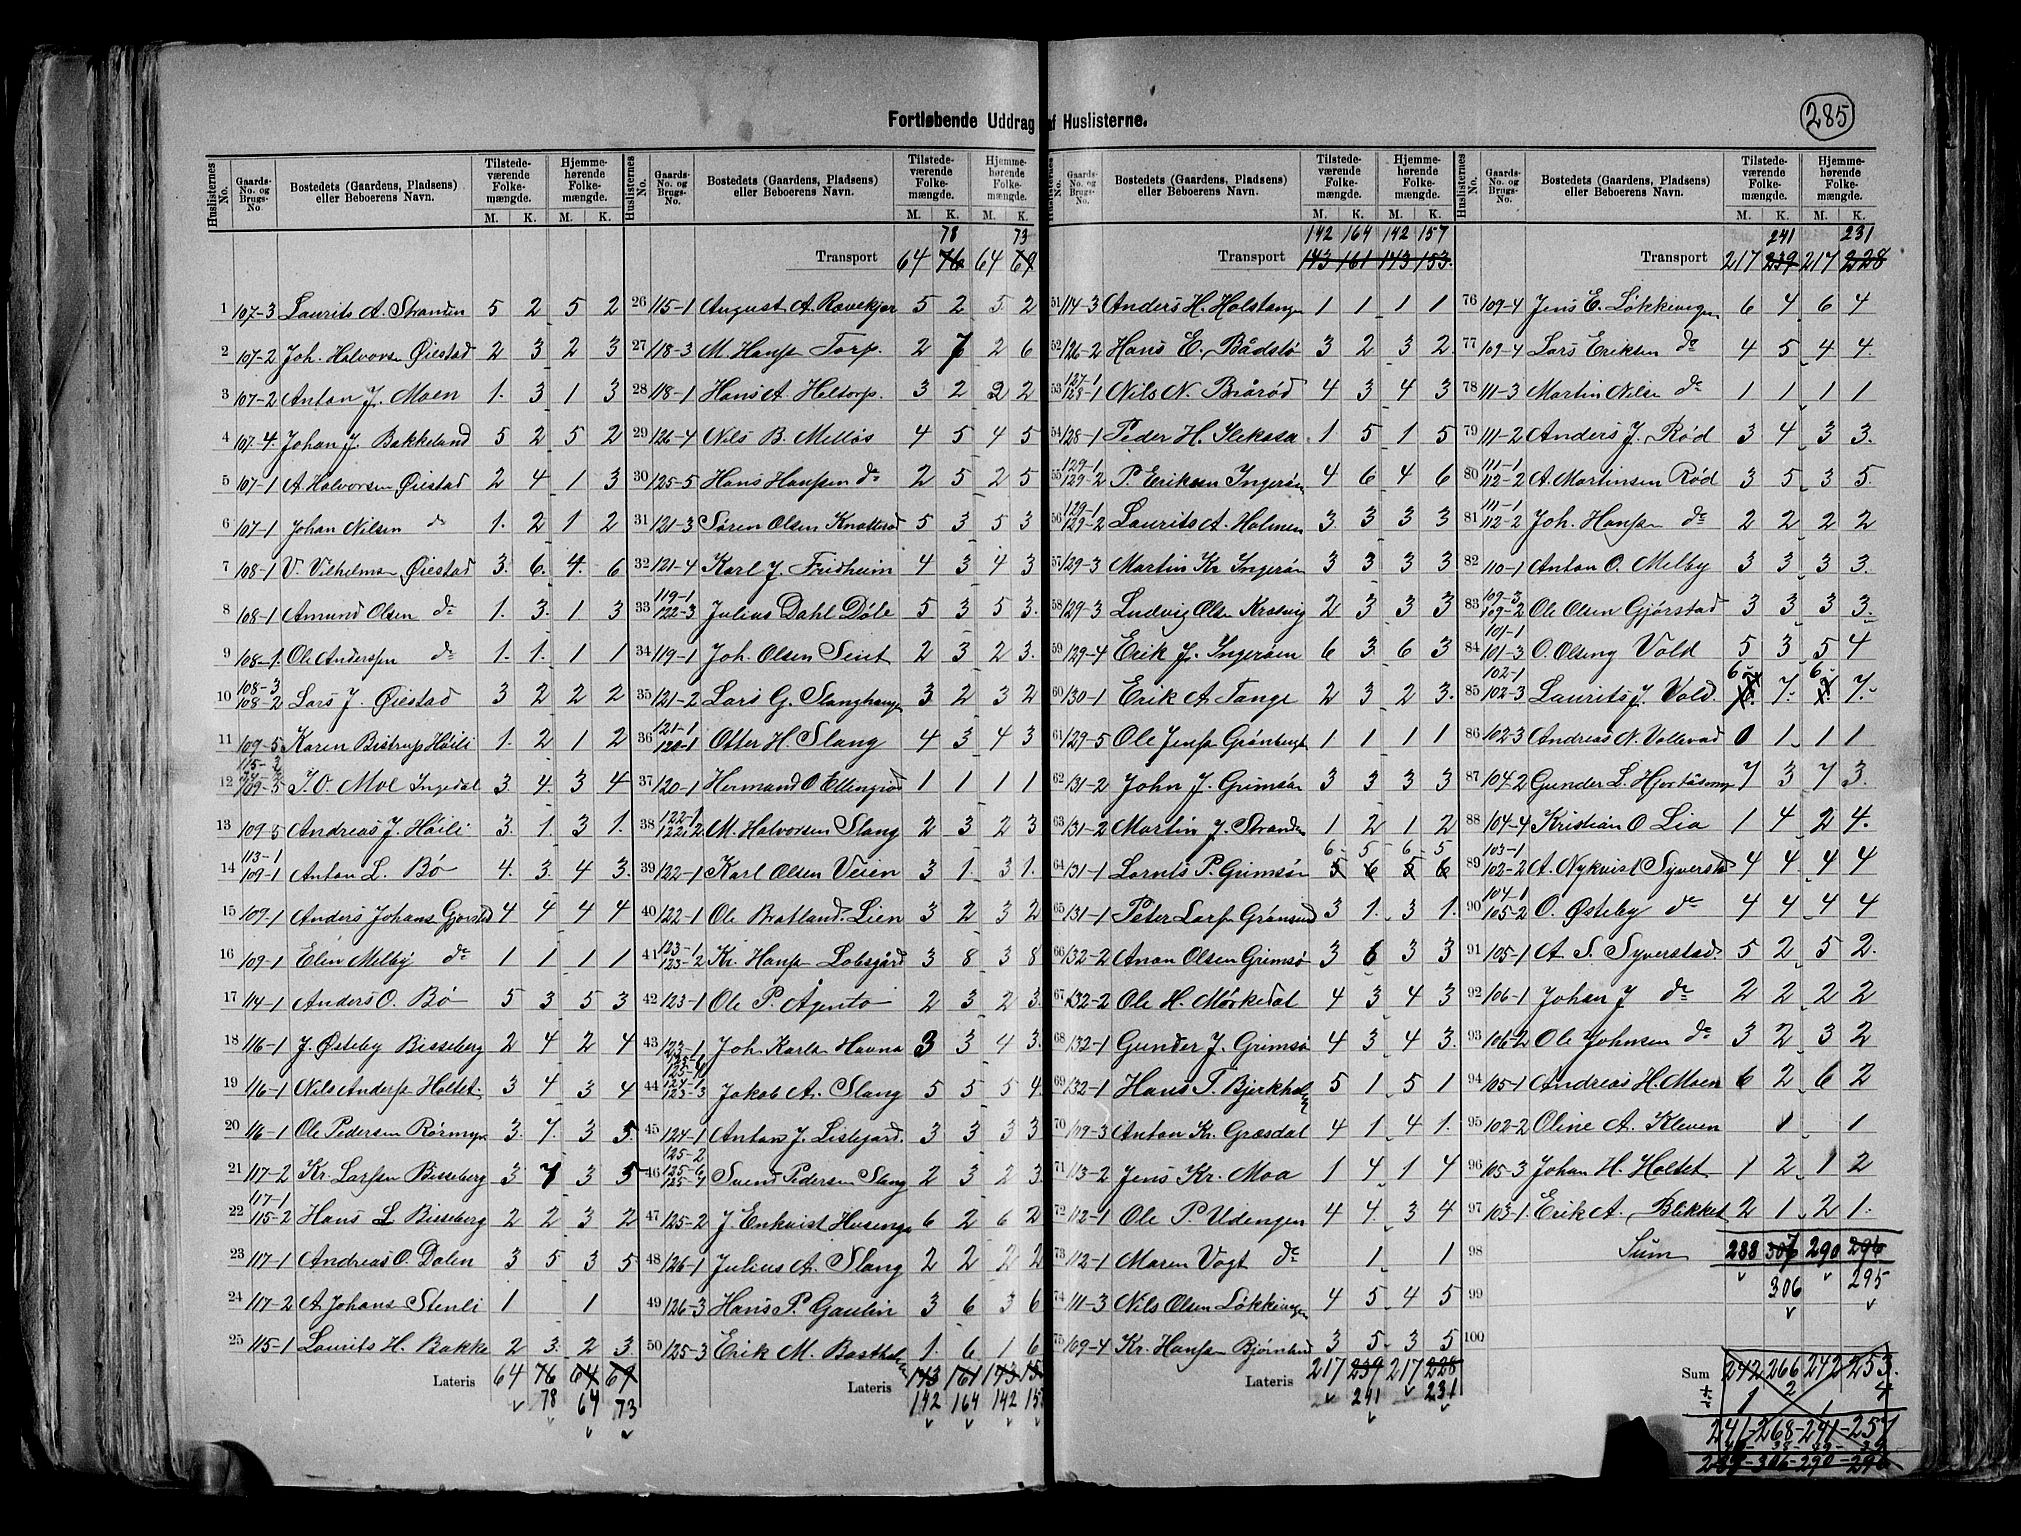 285
Fortløbende Uddrag af Huslisterne.
Huslisternes No. Gaards-No. og Brugs-No. Bostedets (Gaardens, Pladsens) eller Beboerens Navn. Tilstedeværende Folkemængde. Hjemmehørende Folkemængde.
M. K. M. K.
1 107-3 Laurits A. Stranden 5 2 5 2
2 107-2 Joh. Halvorsn Øiestad 2 3 2 3
3 107-2 Anton J. Moen 1. 3 1 3
4 107-4. Johan J. Bakkeland 5 2 5 2
5 107-1 A. Halvorsen Øiestad 2 4 1 3
6 107-1 Johan Nilsen do 1. 2 1 2
7 108-1 V. Vilhelmsn Øiestad 3. 6. 4. 6
8 108-1 Amund Olsen do 1. 3. 1. 3
9 108-1. Ole Anderssen do 1. 1. 1 1
10 108-3 108-2 Lars J. Øiestad 3 2 2 2
11 109-5 Karen Bistrup Høili 1. 2 1 2
12 109-5 J. O. Moe Ingedal 3. 4. 3 4
13 109-5 Andreas J. Høili 3. 1. 3 1.
14 113-1 109-1 Anton L. Bø 4. 3. 4 3.
15 109-1 Anders Johans Gjørstad 4 4 4 4
16 109-1 Elen Melby do 1 1 1 1
17 114-1 Anders O. Bø 5 3 5 3
18 116-1 J. Østeby Bisseberg 2 4 2 4
19 116-1 Nils Anderss Holtet. 3 4 3 4
20 116-1 Ole Pedersen Rørmyr 3. 7. 3 5.
21 117-2 Kr. Larssen Bisseberg 3 7 3 5
22 117-1 115-2 Hans L Bisseberg 2 2 3 2
23 117-1 Andreas O. Dalen 3 5 3 5
24 117-2 A. Johans Stenli 1 1
25 115-1 Laurits H. Bakke 2 3. 2 3.
Lateris 64 76 64 69
78 64 73
Huslisternes No. Gaards-No. og Brugs-No. Bostedets (Gaardens, Pladsens) eller Beboerens Navn. Tilstedeværende Folkemængde. Hjemmehørende Folkemængde.
M. K. M. K.
78 73
Transport 64 76 64 69
26 115-1 August A. Ravekjær 5 2 5 2
27 118-3 M. Hanss Torp. 2 7 2 6
28 118-1 Hans A. Heltorp. 3 2 2 2
29 126-4 Nils B. Melløs 4 5 4 5
30 125-5 Hans Hanssen do 2 5 2 5
31 121-3 Søren Olsen Knatterød 5 3 5 3
32 121-4 Karl J. Fridheim 4 3 4 3
33 119-1 122-3 Julius Dahl Døle 5 3 5 3.
34 119-1 Joh. Olsen Seist 2 3 2 3.
35 121-2 Lars G. Slanghaugn 3 2 3 2
36 121-1 120-1 Otter H. Slang 4 3 4 3
37 120-1 Hermand O Ellingrød 1 1 1 1
38 122-1 122-2 M. Halvorsen Slang 2 3 2 3
39 122-1 Karl Olsen Veien 3 1. 3 1.
40 122-1 Ole Bratland. Lien 3 2 3 2
41 123-1 123-2 Kr. Hanss Labsgård 3 8 3 8
42 123-1 Ole P. Agento 2 3 2 3.
43 123-1 Joh. Karlsn Havna 3 3 4 3.
44 124-1 123-3 Jakob A. Slang 5 5 5 4
45 124-1 Anton J. Lislegard. 3 3 3 3
46 125-2 125-6 125-4 Svend Pedersen Slang 2 3 2 3.
47 125-2 J. Enkvist Huseng 6 2 6 2
48 126-1 Julius A. Slang 2 2 2 2
49 126-3 Hans P. Gaulin 3 6 3 6
50 125-3 Erik M. Basthol 1. 6 1 6
Lateris 143 161 143
142 164 142
Huslisternes No. Gaards-No. og Brugs-No. Bostedets (Gaardens, Pladsens) eller Beboerens Navn. Tilstedeværende Folkemængde. Hjemmehørende Folkemængde.
M. K. M. K.
142 164 142 157
Transport 143 161 143 153.
51 114-3 Anders H. Holstangen 1 1 1 1
52 126-2 Hans E. Bådstø 3 2 3 2.
53 127-1 128-1 Nils N. Brårød 4 3 4 3
54 128-1 Peder H. Ilekasa 1 5 1 5
55 129-1 129-2 P. Eriksen Ingerøen 4 6 4 6
56 129-1 129-2 Laurits A. Holmen 3 3 3 3
57 129-3 Martin Kr Ingerøn 3 3 3 3
58 129-3 Ludvig Olsn Krosvig 2 3 3 3
59 129-4 Erik J. Ingerøen 6 3 6 3
60 130-1 Erik A. Tange 2 3 2 3.
61 129-5 Ole Jenss Grønberg 1 1 1 1
62 131-2 John J. Grimsøn 3 3 3 3
63 131-2 Martin J. Stranden 1 2 1 2
6 5 6 5
64 131-1 Lornts P. Grimsøn 5 6 5 6
65 131-1 Peter Larss Grønsund 3 1. 3 1.
66 132-2 Anon Olsen Grimsø 3 6 3 3
67 132-2 Ole H. Mørkedal 4 3 4 3
68 132-1 Gunder J. Grimsø 4 3 4 3.
69 132-1 Hans T. Bjerkholm 5 1 5 1
70 109-3 Anton Kr. Græsdal 4 1 4 1.
71 113-2 Jens Kr. Moa 1 4 1 4
72 112-1 Ole P. Udengen 4 4 3 4
73 112-1 Maren Vogt do 1 1
74 111-3 Nils Olsen Løkkevigen 4 5 4 5
75 109-4 Kr. Hanss Bjørnlund 3 5 3 5
Lateris 217 239 217 228
241 231
Huslisternes No. Gaards-No. og Brugs-No. Bostedets (Gaardens, Pladsens) eller Beboerens Navn. Tilstedeværende Folkemængde. Hjemmehørende Folkemængde.
M. K. M. K.
241 231
Transport 217 239 217 228
76 109-4 Jens E. Løkkevigen 6 4 6 4
77 109-4 Lars Eriksen do 4 5 4 4.
78 111-3 Martin Nilsn do 1 1 1 1
79 111-2 Anders J. Rød 3 4 3 3.
80 111-1 112-2 A. Martinsen Rød 3 5 3 5.
81 111-1 112-2 Joh. Hanssn do 2 2 2 2
82 110-1 Anton O. Melby 3 3 3 3.
83 109-3 109-2 Ole Olsen Gjørstad 3 3 3 3.
84 101-1 101-3 O. Olseng Vold 5 3 5 4
85 102-1 102-3 Laurits J. Vold. 6 7. 6 7.
86 102-3 Andreas N. Vollvad 0 1 1 1
87 104-2 Gunder L. Hjortåsmyr 7 3 7 3.
88 104-4 Kristian O Lia 1 4 2 4.
89 103-1 102-2 A. Nykvist Syverstad 4 4 4 4
90 104-1 105-2 O. Østeby do 4 4 4 4
91 105-1 A. S. Syverstad. 5 2 5 2.
92 106-1 Johan J do 2 2 2 2
93 106-2 Ole Johnsen do 3 2 3 2
94 105-1 Andreas H. Moen 6 2 6 2
95 102-2 Oline A. Kleven 1 1
96 105-3 Johan H. Holtet 1 2 1 2
97 103-1 Erik A. Blikket 2 1 2 1.
98 Sum 288 307 290 296
306 295
99
100
Sum 242 266 242 253.
1 2 1 4
241-268-241-257
306-290-296